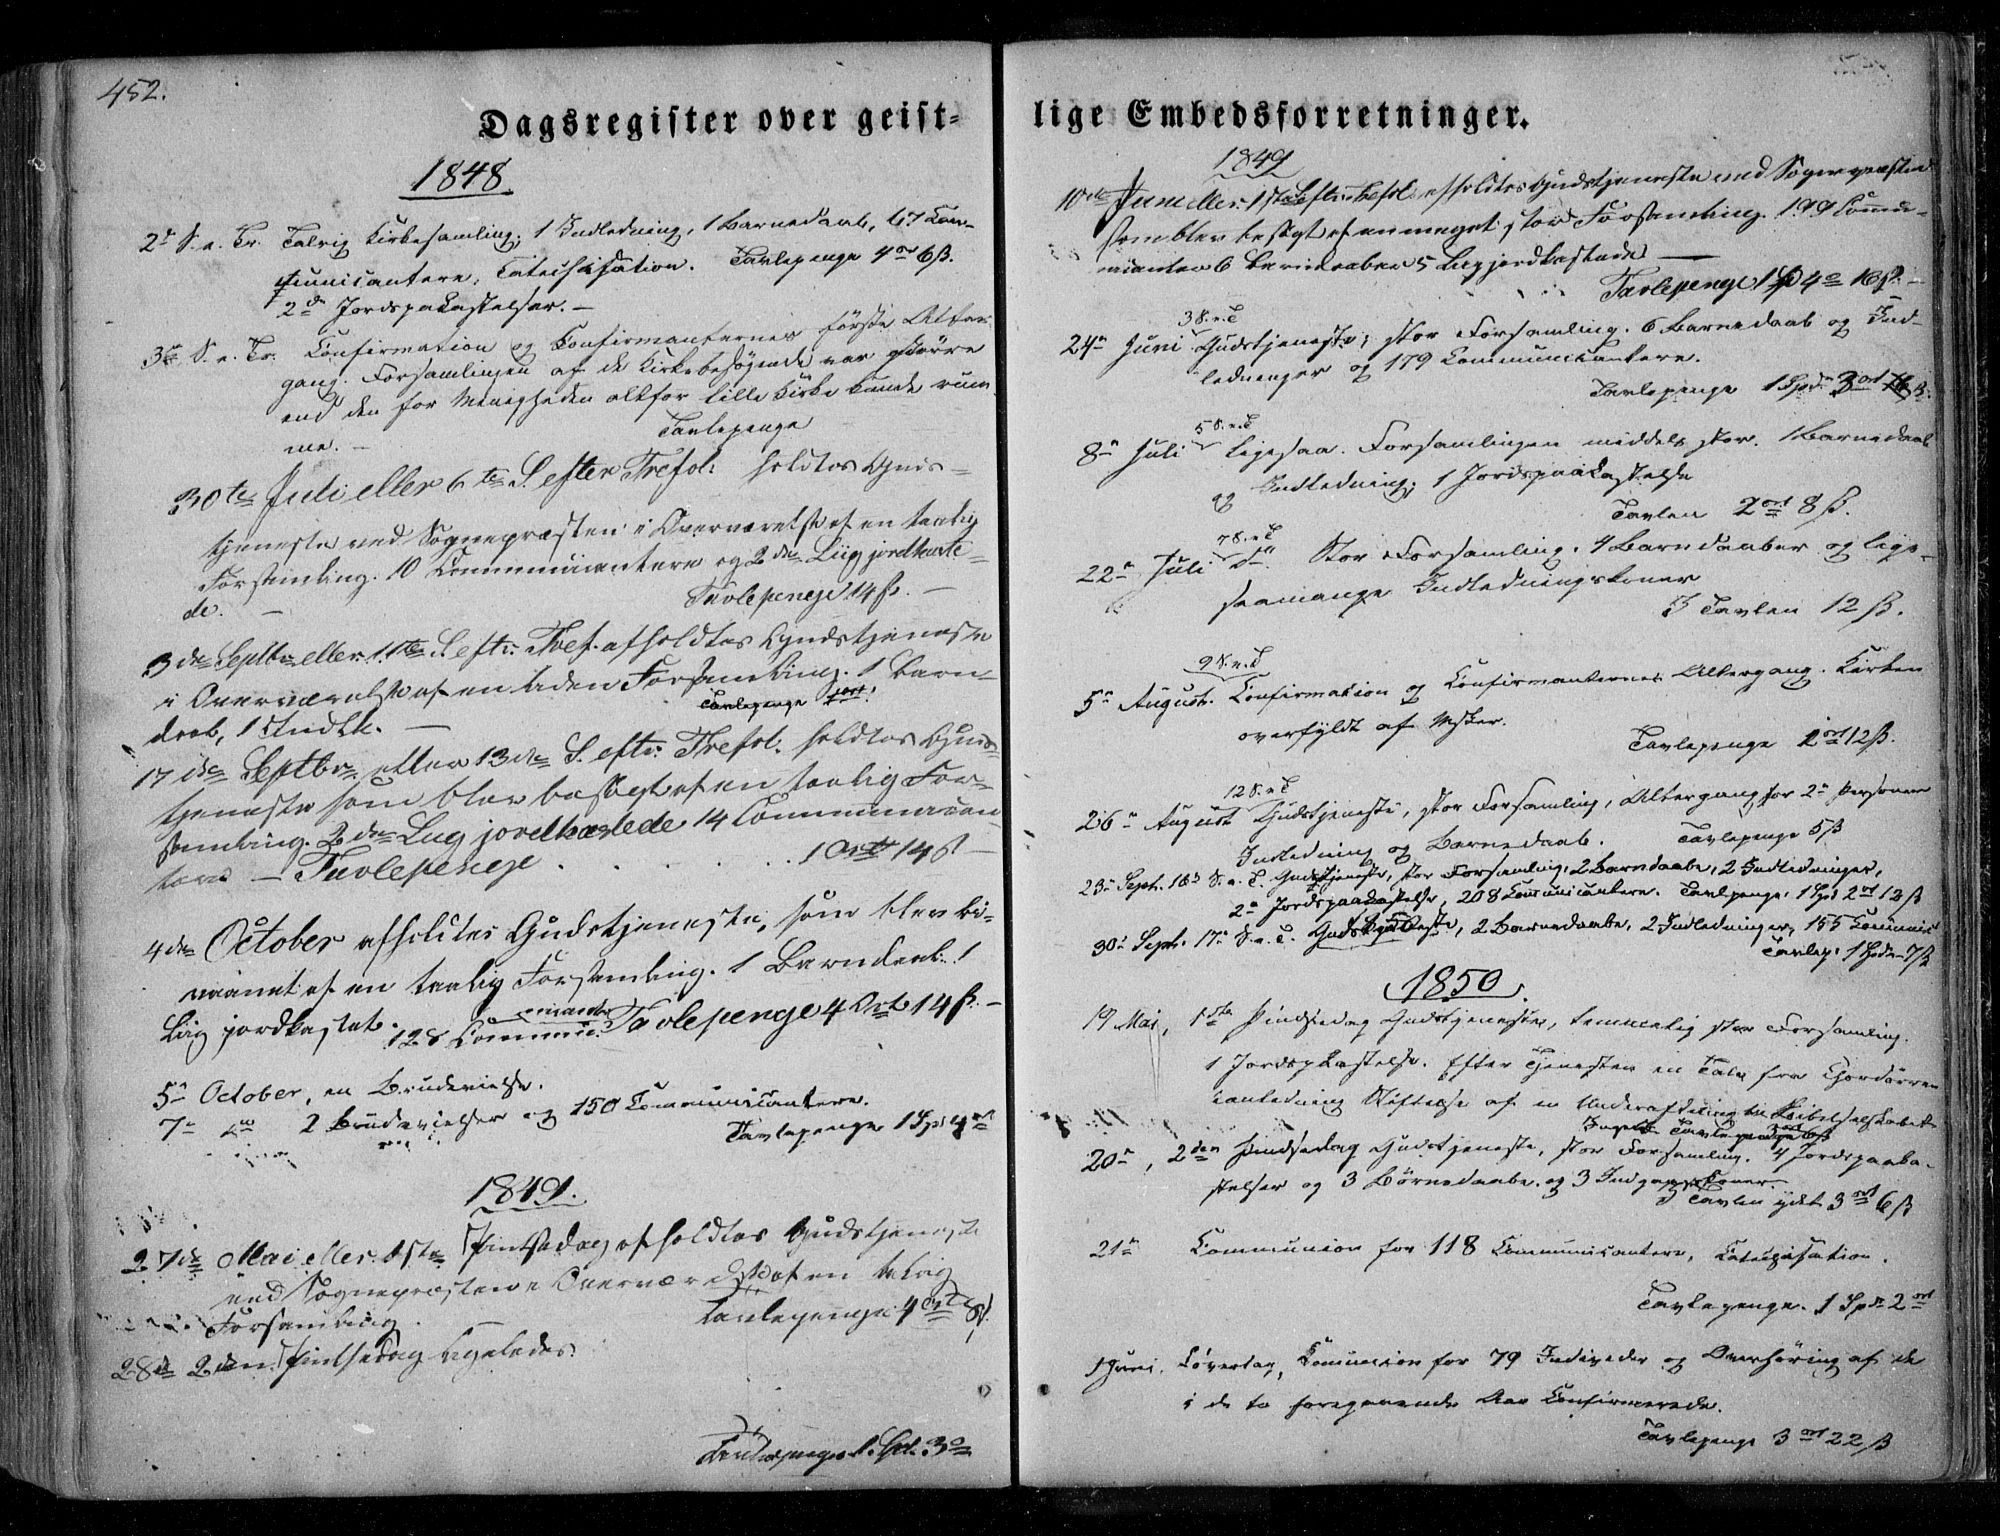 452.
Dagsregister over geist-
1848
2de S. e. Tr. Talvig Kirkesamling; 1 Indledning, 1 Barnedaab, 67 Com-
municantere, Catechisation. Tavlepenge 4 ort 6 ß.
2de Jordspakastelser. —
3de S. e. Tr. Confirmation og Confirmanternes første Altar-
gang. Forsamlingen af de Kirkebesøgende var større
end den for Menigheden altfor lille Kirke kunde rum-
me. — Tavlepenge
30te Juli eller 6te S. efter Trefol: holdtes Guds-
tjeneste ved Sognepræsten i Overværelse af en taalig
Forsamling. 10 Communicantere og 2de Liig jordkaste-
de. — Tavlepenge 14 ß. —
3die Septbr. eller 11te S. eftr. Tref. afholdtes Gudstjeneste
i Overværelse af en liden Forsamling. 1 Barn-
daab, 1 Indlk. — Tavlepenge 1 ort.
17de Septbr. eller 13de S. eftr. Trefol. holdtes Guds-
tjeneste som blev besøgt af en taalig For-
samling. 2de Liig jordkastede 14 Communican-
tere — Tavlepenge . . . . . 1 Ort 14 ß —
4de October afholdtes Gudstjeneste, som blev bi-
vaanet af en taalig Forsamling. 1 Barndaab. 1
Liig jordkastet. 128 Communicanter Tavlepenge 4 Ort 14 ß. —
5te October, en Brudevielse.
7de do 2 Brudevielser og 150 Communicantere.
Tavlepenge 1 Spd 4 ort
1849.
27de Mai eller 1ste Pintsedag afholdtes Gudstjeneste
ved Sognepræsten i Overværelse af en talrig
Forsamling. Tavlepenge 4 Ort 8 ß.
28de 2den Pintsedag ligeledes.
Tavlepenge 1 Spd. 3 o
lige Embedsforretninger.
1849
10de Juni eller 1ste S. eftr. Trefol. afholdtes Gudstjeneste ved Sognepræsten
som blev besøgt af en meget stor Forsamling. 199 Commu-
nicanter 6 Barndaaber 5 Liig jordkastede —
Tavlepenge 1 Sp 4 o 16 ß. —
3 S. e. T
24de Juni Gudstjeneste; stor Forsamling. 6 Barnedaab og Ind-
ledninger og 179 Communicantere.
Tavlepenge 1 Spd 3 ort 16 ß.
5 S. e. T
8de Juli Ligesaa. Forsamlingen middels stor. 1 Barnedaab
og Indledning; 1 Jordspaakastelse
Tavlen 2 ort 8 ß.
7 S. e. T
22de Juli do. Stor Forsamling. 4 Barnedaaber og lige-
saamange Indledningskoner
I Tavlen 12 ß.
9 S. e. T
5te August. Confirmation og Confirmanternes Altergang. Kirken
overfyldt af Mennesker.
Tavlepenge 2 ort 12 ß.
12 S. e. T
26de August Gudstjeneste, stor Forsamling, Altergang for 2de Personer
Indledning og Barnedaab. Tavlepenge 5 ß
23de Septr. 16de S. e. T. Gudstjeneste, stor Forsamling, 2 Barnedaabe, 2 Indledninger,
2de Jordspaakastelse, 208 Communicantere. Tavlepenge 1 Spd 2 ort 12 ß
30te Septr. 17de S. e. T. Gudstjeneste, 2 Barnedaabe, 2 Indledninger, 155 Communic
Tavlep. 1 Spd — 7 ß
1850.
19 Mai, 1ste Pindsedag Gudstjeneste, temmelig stor Forsamling.
1 Jordspkastelse. Efter Tjenesten en Tale fra Chordøren i
anledning Stiftelse af en Underafdeling til Bibelselskabet
Tavlepenge 2 ort 6 ß
20de, 2den Pindsedag Gudstjeneste, stor Forsamling. 4 Jordspaaka-
stelser og 3 Børnedaabe og 3 Indgangskoner.
I Tavlen ydet 3 ort 6 ß
21de Communion for 118 Communicantere, Catechisation.
Tavlepenge. 1 Spd 2 ort
1 Juni. Løverdag, Communion for 79 Individer og Overhøring af de
i de to foregaaende Aar Confirmerede.
Tavlepenge 3 ort 22 ß